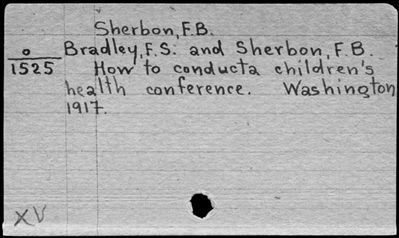 Sherbon, F.B.
o Bradley, F.S. and Sherbon, F.B.
1525 How to conducta children's
health conference. Washington
1917.
XV